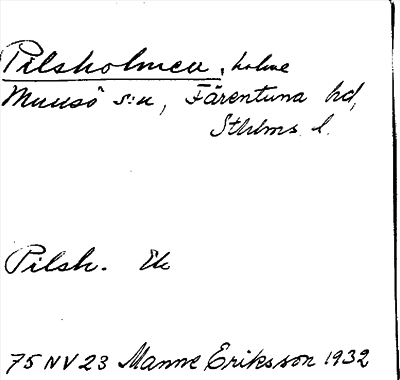 Pilsholmen, holme
Munsö s:n, Färentuna hd,
Sthlms l.
Pilsh. Ek
75 NV 23 Manne Eriksson 1932